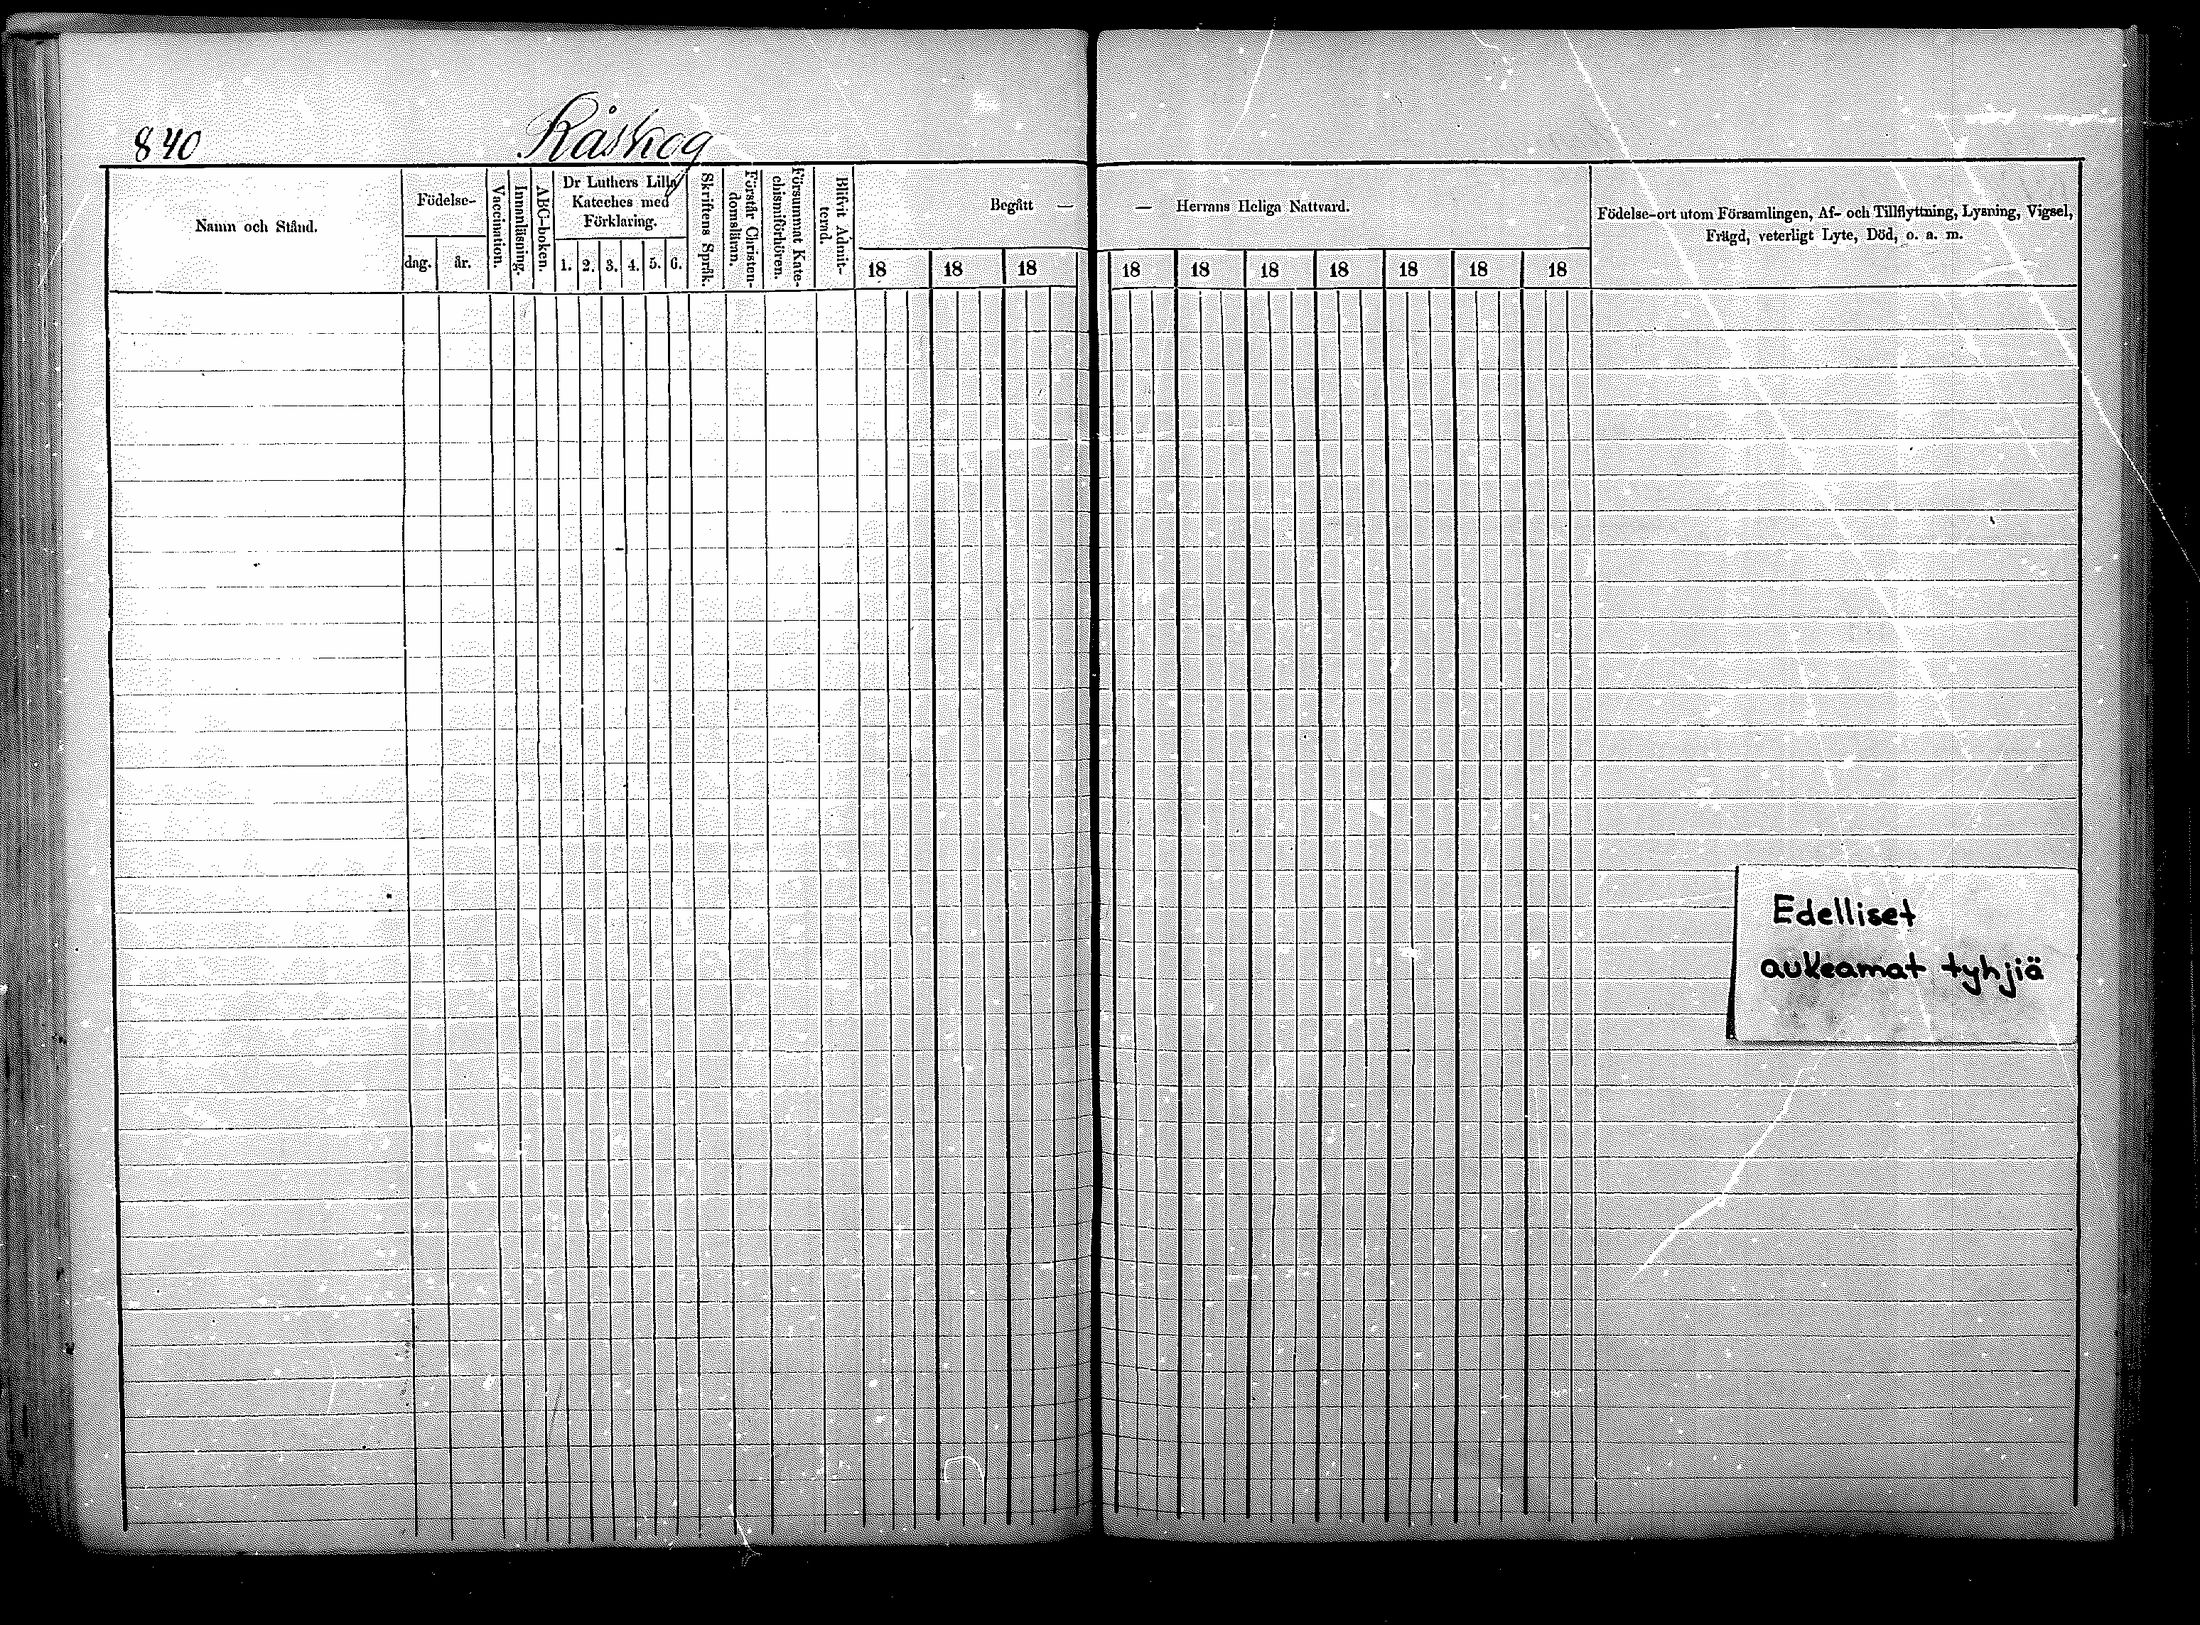 840
Råskog
Namn och Stånd.
Födelse-
dag.
år.
Vaccination.
Innanläsning.
ABC-boken.
Dr Luthers Lilla
Kateches med
Förklaring.
1. 2. 3. 4. 5. 6.
Skriftens Språk.
Förstår Christen-
domslärnn.
Försummat Kate-
chismiförhören.
Blifvit Admit-
terad.
Begått —
18 18 18
— Herrans Heliga Nattvard.
18 18 18 18 18 18 18
Födelse-ort utom Församlingen, Af- och Tillflyttning, Lysning, Vigsel,
Frägd, veterligt Lyte, Död, o. a. m.
Edelliset
aukeamat tyhjiä